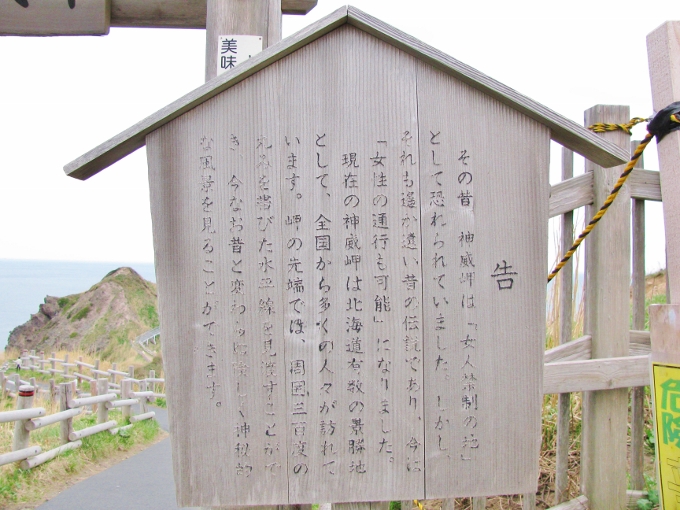 告
その昔 神威岬は「女人禁制の地」
として恐れられていました。しかし、
それも遥か遠い昔の伝説であり、今は
「女性の通行も可能」になりました。
現在の神威岬は北海道有数の景勝地
として、全国から多くの人々が訪れて
います。岬の先端では、周囲三百度の
丸みを帯びた水平線を見渡すことがで
き、今なお昔と変わらぬ 神秘的
な風景を見ることができます。
美味
危険